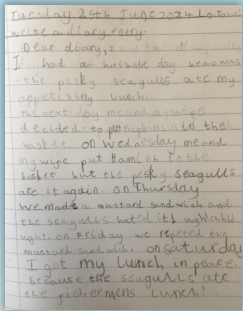 Tuesday 25th June 2024 Lo: to
write a diary entry.
Dear diary,
I had a horibale day because
the pesky seagulls ate my
appetising lunch.
The next day me and my wife
decided to put napkins in the
basket. on Wednesday me and
my wife put Hamish in the
basket but the pesky seagulls
ate it again. on Thursday
we mad a mustard sandwich and
the seagulls hated it!
ugh!. on Friday we repeted the
mustard sandwich. on saturday
I got my lunch in peace.
because the seagulls ate
the fishermens lunch!.